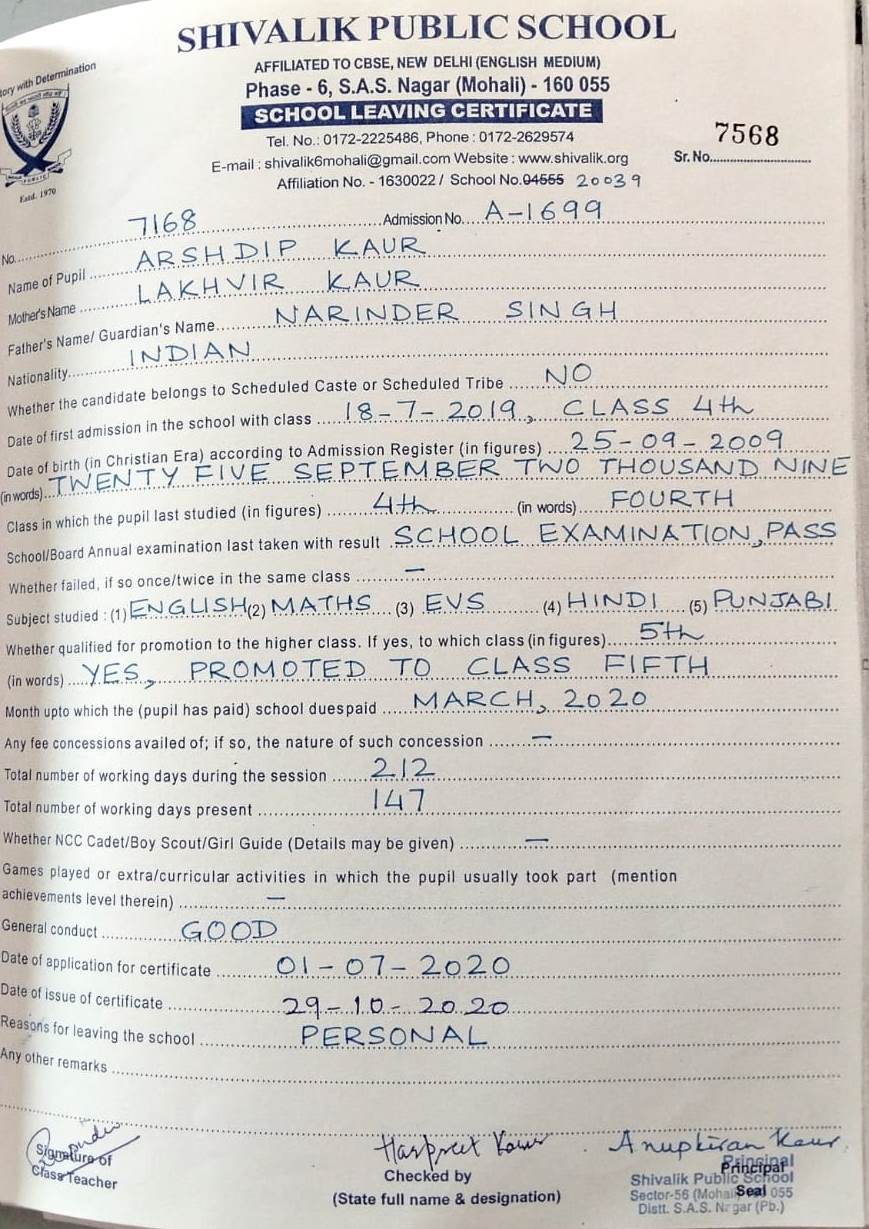 SHIVALIK PUBLIC SCHOOL
AFFILIATED TO CBSE, NEW DELHI (ENGLISH MEDIUM)
Phase - 6, S.A.S. Nagar (Mohali) - 160 055
SCHOOL LEAVING CERTIFICATE
Tel. No.: 0172-2225486, Phone : 0172-2629574
E-mail : shivalik6mohali@gmail.com Website : www.shivalik.org
Affiliation No. - 1630022 / School No. 04555 20039
tory with Determination
Estd. 1970
Sr. No. 7568
No. 7168 Admission No. A-1699
Name of Pupil ARSHDIP KAUR
Mother's Name LAKHVIR KAUR
Father's Name/ Guardian's Name NARINDER SINGH
Nationality INDIAN
Whether the candidate belongs to Scheduled Caste or Scheduled Tribe NO
Date of first admission in the school with class 18-7-2019, CLASS 4th
Date of birth (in Christian Era) according to Admission Register (in figures) 25-09-2009
(in words) TWENTY FIVE SEPTEMBER TWO THOUSAND NINE
Class in which the pupil last studied (in figures) 4th (in words) FOURTH
School/Board Annual examination last taken with result SCHOOL EXAMINATION, PASS
Whether failed, if so once/twice in the same class —
Subject studied : (1) ENGLISH (2) MATHS (3) EVS (4) HINDI (5) PUNJABI
Whether qualified for promotion to the higher class. If yes, to which class (in figures) 5th
(in words) YES, PROMOTED TO CLASS FIFTH
Month upto which the (pupil has paid) school duespaid MARCH, 2020
Any fee concessions availed of; if so, the nature of such concession —
Total number of working days during the session 212
Total number of working days present 147
Whether NCC Cadet/Boy Scout/Girl Guide (Details may be given) —
Games played or extra/curricular activities in which the pupil usually took part (mention
achievements level therein) —
General conduct GOOD
Date of application for certificate 01-07-2020
Date of issue of certificate 29-10-2020
Reasons for leaving the school PERSONAL
Any other remarks
Harpreet Kaur
Anupkiran Kaur
Signature of
Class Teacher
Checked by
(State full name & designation)
Principal
Seal
Principal
Shivalik Public School
Sector-56 (Mohali) 055
Distt. S.A.S. Nagar (Pb.)